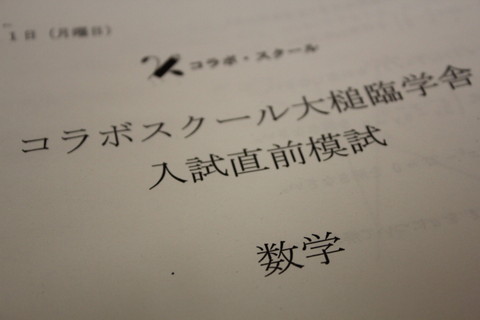 1日（月曜日）
コラボ・スクール
コラボスクール大槌臨学舎
入試直前模試
数学